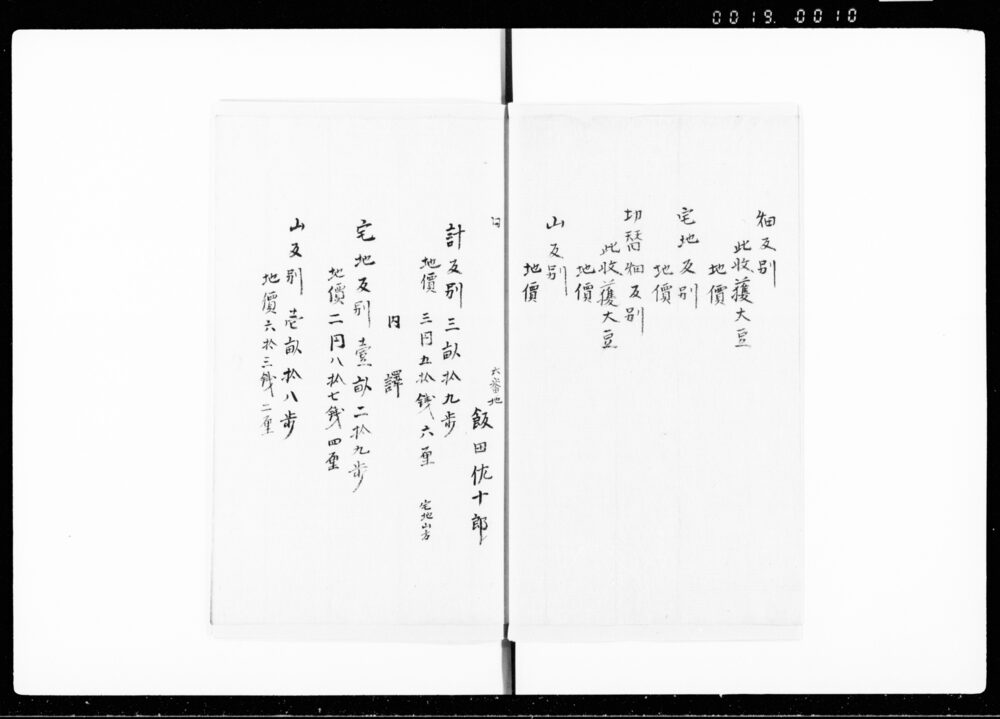 0019 0010
畑反別
此收獲大豆
地價
宅地反別
地價
切替畑反別
此收獲大豆
地價
山反別
地價
六番地
飯田佐十郎
計反別三畝拾九歩
地價三円五拾銭六厘
宅地山方
内譯
宅地反別壹畝二拾九歩
地價二円八拾七銭四厘
山反別壱畝拾八歩
地價六拾三銭二厘